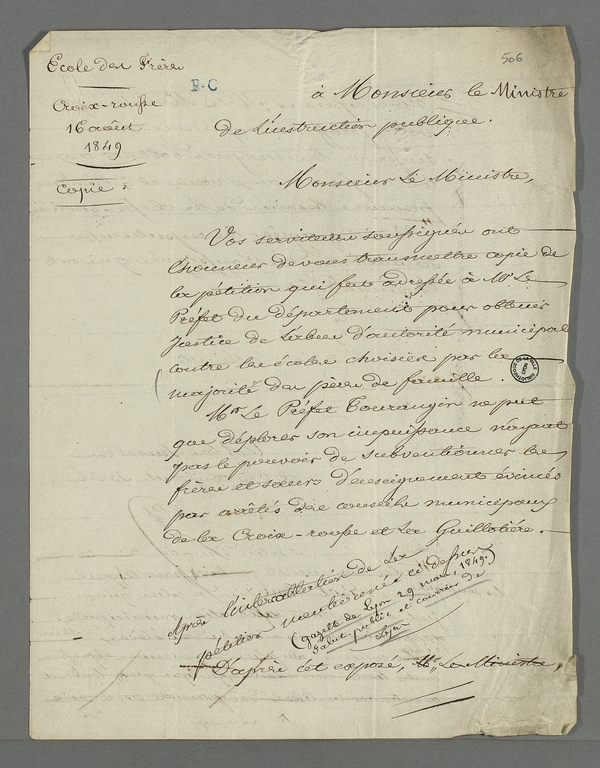 Ecole des Frères
Croix-rousse
16 août
1849
Copie.
F-C
506
à Monsieur le Ministre
de L'instruction publique.
Monsieur Le Ministre,
Vos serviteurs soussignés ont
l'honneur de vous transmettre copie de
la pétition qui fut adressée à Mr Le
Préfet du département pour obtenir
justice de L'abus d'autorité municipal
contre les écoles choisies par la
majorité des pères de famille.
Mr Le Préfet Tourangin ne put
que déplorer son impuissance n'ayant
pas le pouvoir de subventionner les
frères et sœurs d'enseignement évincés
par arrêtés des conseils municipaux
de la Croix-rousse et La Guillotière.
Après de La
pétition mentionnée ci-dessus
(gazette de Lyon 29 mars, 1849.)
Salut public et courrier de
Lyon
D'après cet exposé, Mr. Le Ministre,